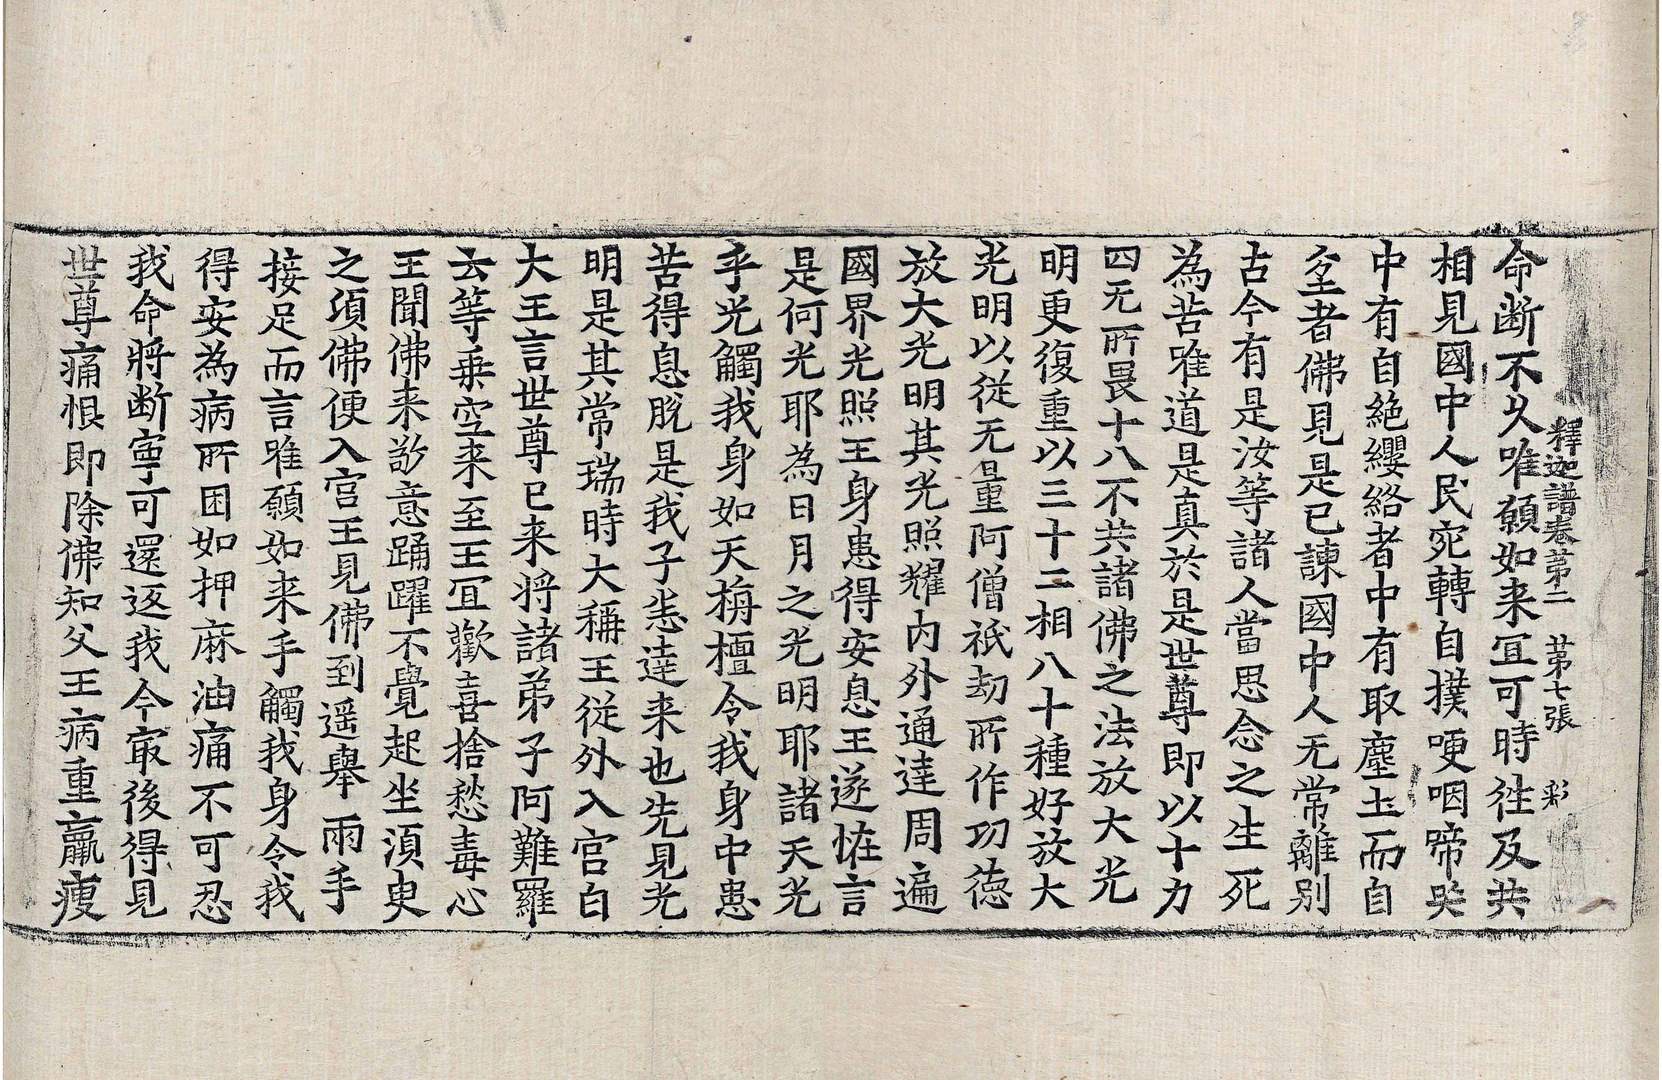 釋迦譜卷第二 苐七張 彩
命断不久唯願如来冝可時徃及共
相見國中人民宛轉自撲哽咽啼哭
中有自絶纓絡者中有取塵玉而自
坌者佛見是已諫國中人无常離别
古今有是汝等諸人當思念之生死
為苦唯道是真於是世尊即以十力
四无所畏十八不共諸佛之法放大光
明更復重以三十二相八十種好放大
光明以従无量阿僧祇劫所作功徳
放大光明其光照耀内外通達周遍
國界光照王身患得安息王遂恠言
是何光耶為日月之光明耶諸天光
乎光觸我身如天栴檀令我身中患
苦得息脱是我子悉達来也先見光
明是其常瑞時大稱王従外入宫白
大王言世尊已来将諸弟子阿難羅
云等乗空来至王冝歡喜捨愁毒心
王聞佛来敬意踊躍不覺起坐湏臾
之湏佛便入宫王見佛到遥舉兩手
接足而言唯願如来手觸我身令我
得安為病所困如押麻油痛不可忍
我命將断寧可還返我今㝡後得見
世尊痛恨即除佛知父王病重羸瘦